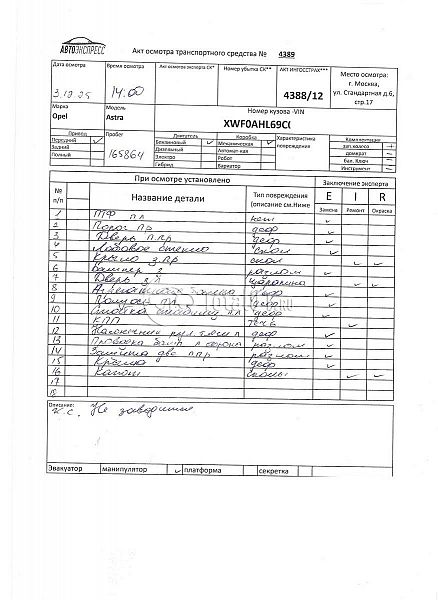 АВТОЭКСПРЕСС
Акт осмотра транспортного средства № 4389
Дата осмотра
Время осмотра
Акт осмотра эксперта СК*
Номер убытка СК**
АКТ ИНГОССТРАХ***
3.10.25
14:00
4388/12
Место осмотра:
г. Москва,
ул. Стандартная д.6,
стр.17
Марка
Модель
Номер кузова -VIN
Opel
Astra
XWF0AHL69C(
Привод
Пробег
Двигатель
Коробка
Характеристика повреждения
Комплектация
Передний
Задний
Полный
165864
Бензиновый
Дизельный
Электро
Гибрид
Механическая
Автомат-кая
Робот
Вариатор
зап.колесо
домкрат
бал. Ключ
Инструмент
При осмотре установлено
Заключение эксперта
№ п/п
Название детали
Тип повреждения
(описание см.Ниже
E I R
Замена Ремонт Окраска
1 ПТФ пл нет
2 Порог пр деф
3 Дверь п.пр деф
4 Лобовое стекло скол
5 Крыло з.пр скол
6 Бампер з разлом
7 Дверь з.л царапина
8 деф
9 деф
10 деф
11 КПП течь
12 деф
13 Проводка разлом
14 разлом
15 деф
16 Капот сколы
17
18
Описание:
к.с. Не заводится
Эвакуатор манипулятор платформа секретка